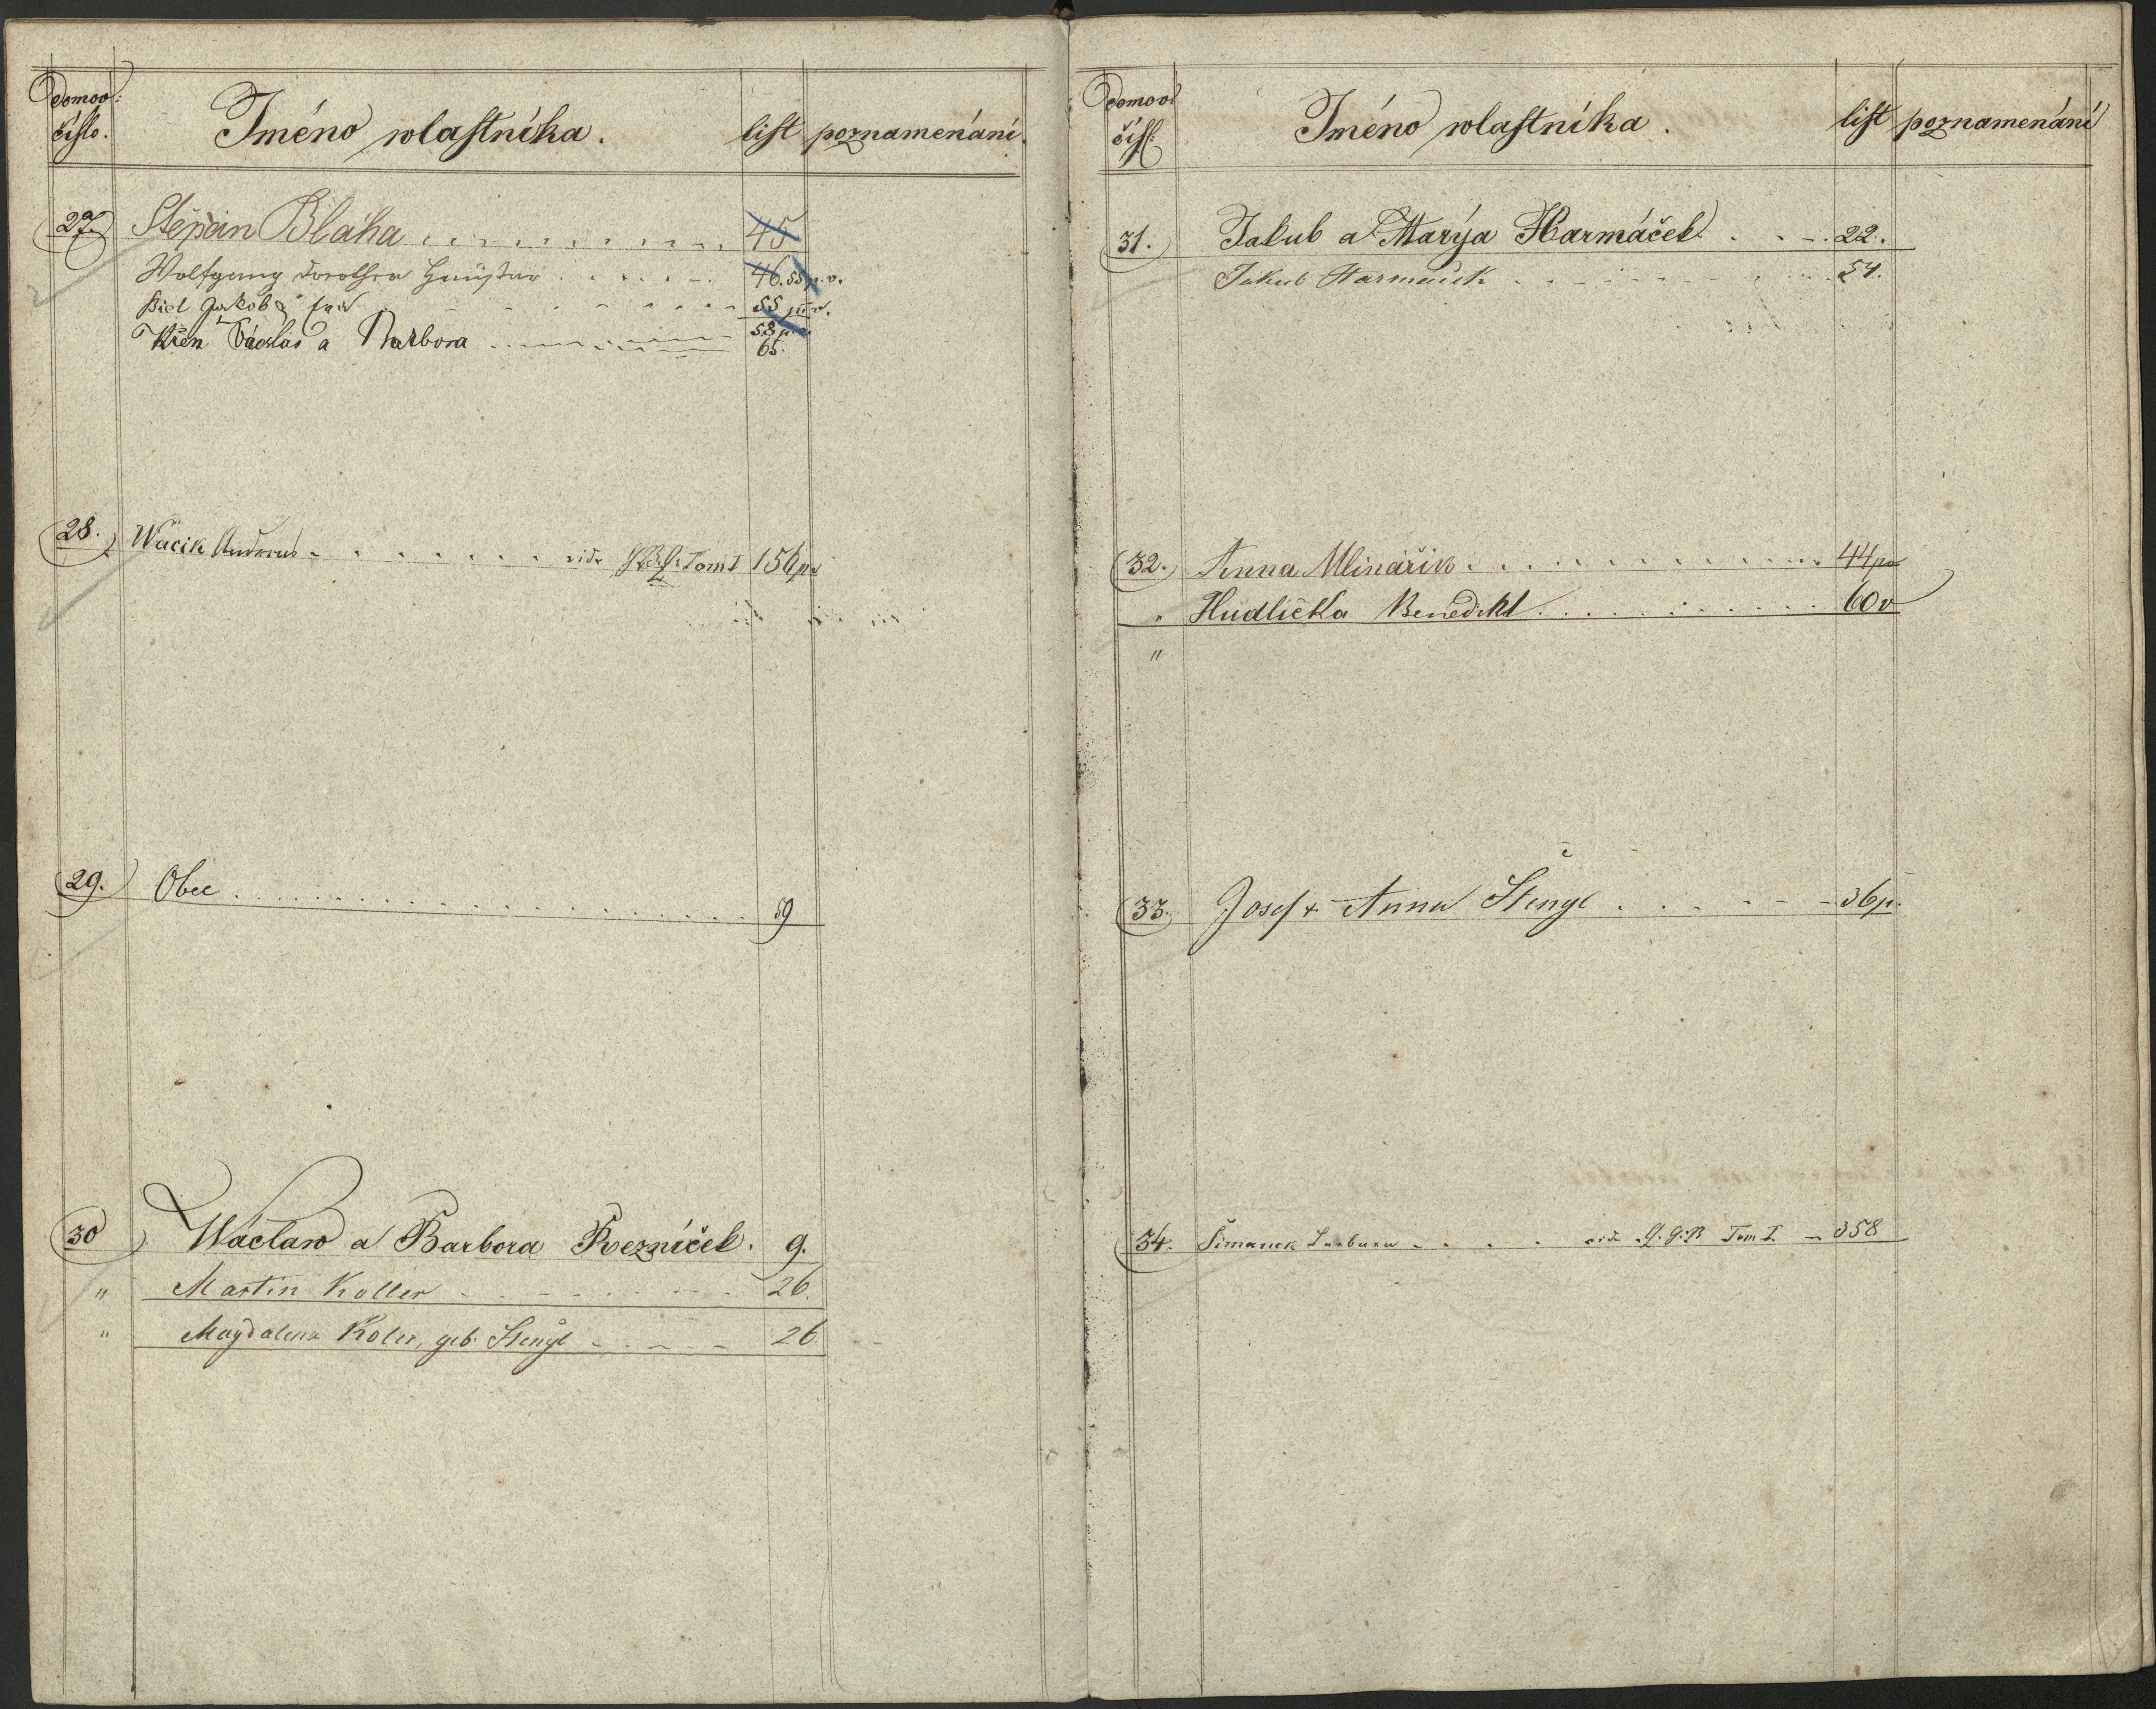 Domov: číslo. Jméno wlastníka. list poznamenání.
27. Štěpán Bláha 45
Wolfgang Dorothea 46. 55 p. v.
Jakob 55 p. v.
Křen Václav a Barbora 58 p. v.
65.
28. Wacik Andreas vide Tom I 156 pv
29. Obec 59
30 Wáclaw a Barbora Řezníček. 9.
" Martin Koller 26.
" Magdalena Koler, geb. Stengl 26
Domov: čísl: Jméno wlastníka. list poznamenání
31. Jakub a Marya Harmáček 22.
Jakub Harmáček 54.
32. Anna Mlinářik 44 pv
" Hudlička Benedikt 60 v
"
33. Josef & Anna Štengl 36 p.
34. Šimanek Barbara vide G. G. B Tom I. 358